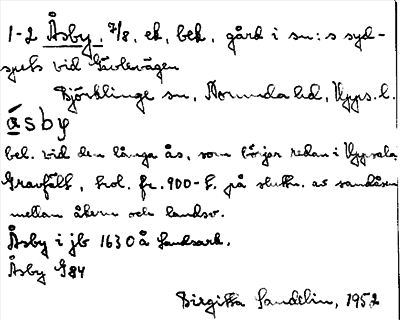 1-2 Åsby, 7/8, ek, bek, gård i sn:s syd-
spets vid Gävlevägen
Björklinge sn, Norunda hd, Upps. l.
åsby
bel. vid den långa ås, som börjar redan i Uppsala
Gravfält, trol. fr. 900-t. på sluttn. av sandåsen
mellan åkern och landsv.
Åsby i jb 1630 å Landsark.
Åsby G 84
Birgitta Sandelin, 1952